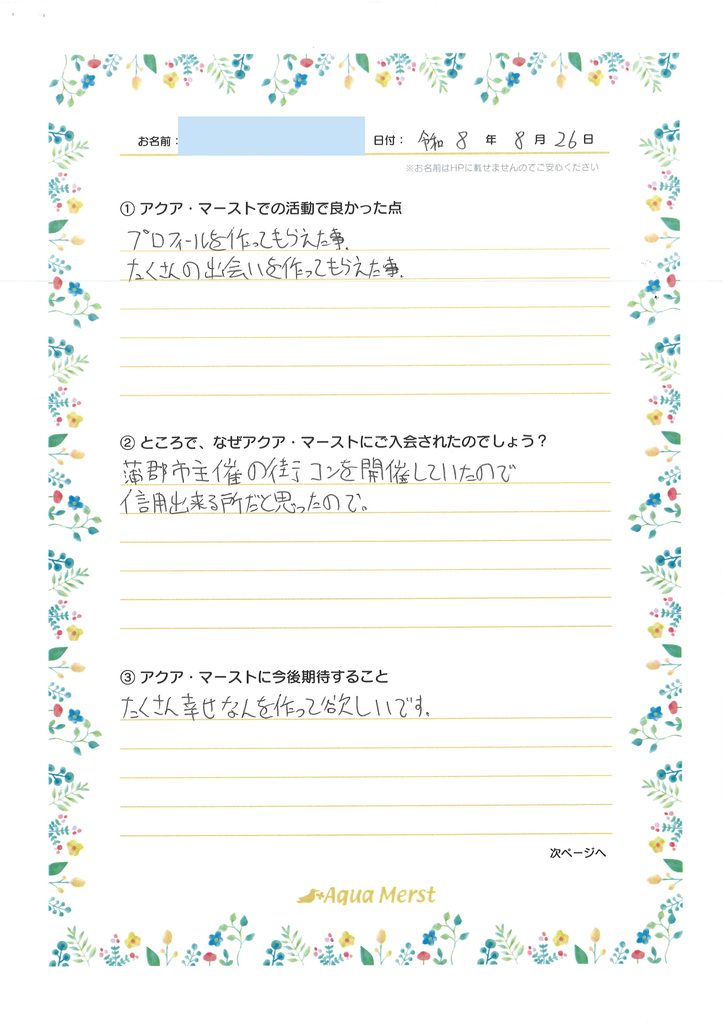 お名前：
日付： 令和 8 年 8 月 26 日
※お名前はHPに載せませんのでご安心ください
① アクア・マーストでの活動で良かった点
プロフィールを作ってもらえた事.
たくさんの出会いを作ってもらえた事.
② ところで、なぜアクア・マーストにご入会されたのでしょう？
蒲郡市主催の街コンを開催していたので
信用出来る所だと思ったので。
③ アクア・マーストに今後期待すること
たくさん幸せな人を作って欲しいです.
次ページへ
Aqua Merst